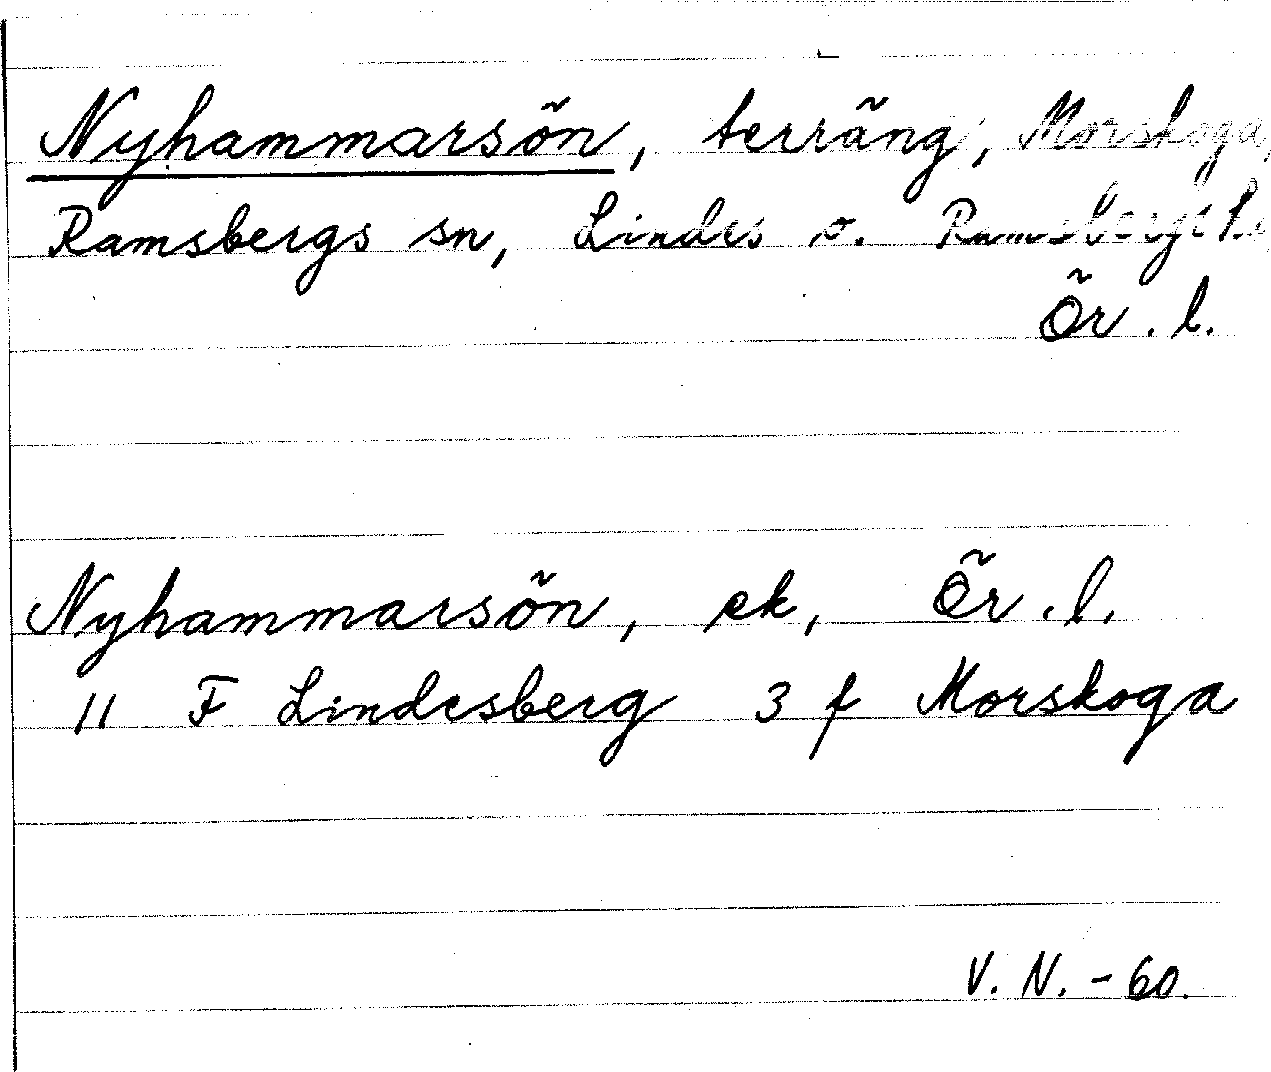 Nyhammarsön, terräng, Morskoga,
Ramsbergs sn, Lindes o. Ramsbergs
Ör. l.
Nyhammarsön, ek, Ör. l.
11 F Lindesberg 3 f Morskoga
V. N. - 60.